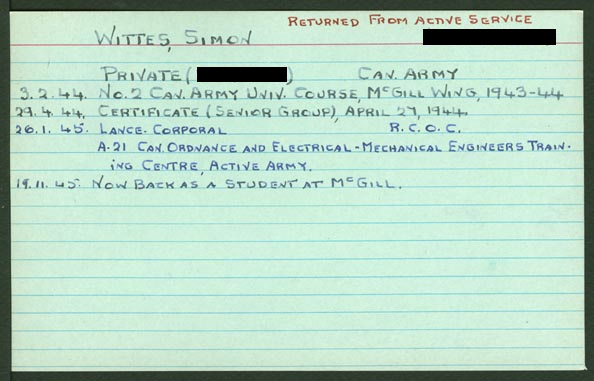 RETURNED FROM ACTIVE SERVICE
WITTES, SIMON
PRIVATE ( ) CAN. ARMY
3.2.44. NO. 2 CAN. ARMY UNIV. COURSE, McGILL WING, 1943-44
29.4.44. CERTIFICATE (SENIOR GROUP), APRIL 27, 1944.
26.1.45. LANCE-CORPORAL R.C.O.C.
A-21 CAN. ORDNANCE AND ELECTRICAL-MECHANICAL ENGINEERS TRAIN-
ING CENTRE, ACTIVE ARMY.
19.11.45. NOW BACK AS A STUDENT AT McGILL.